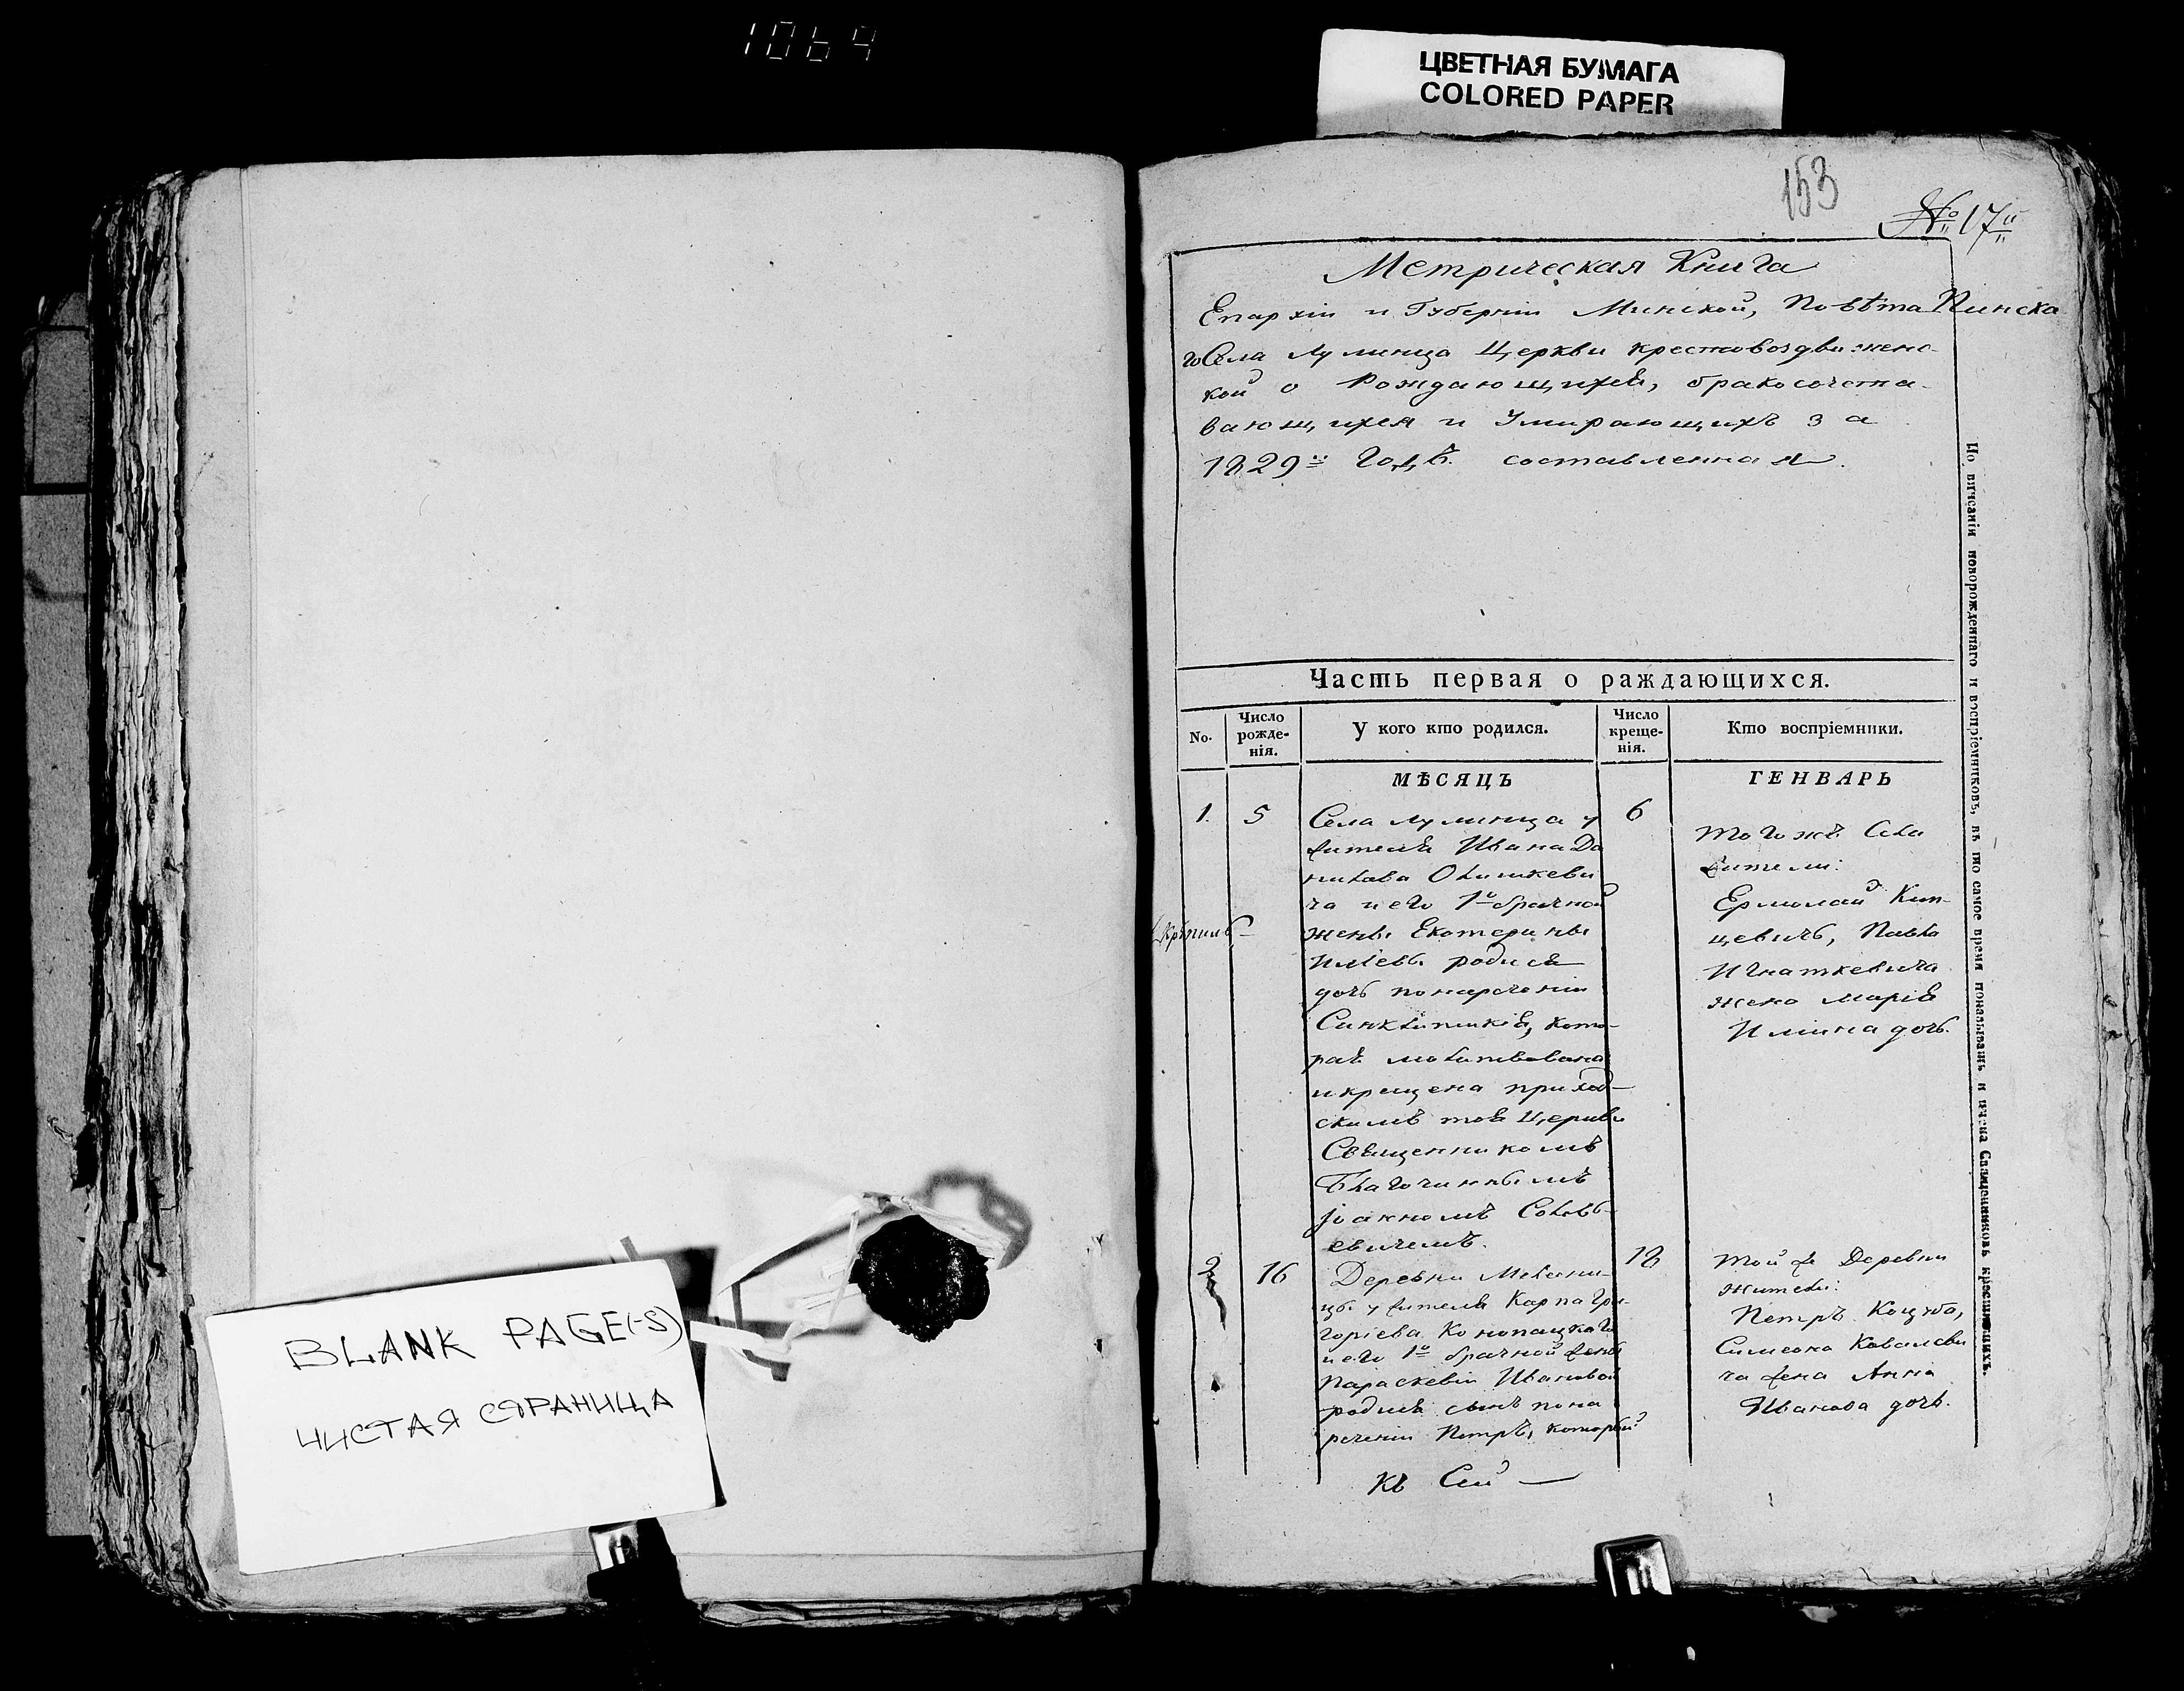 1064
ЦВЕТНАЯ БУМАГА
COLORED PAPER
BLANK PAGE(-S)
ЧИСТАЯ СТРАНИЦА
153
№ 17й
Метрическая Книга
Епархіи и Губерніи Минской, Повѣта Пинска
го Села Лулинца Церкви крестовоздвиженс-
кой о Рождающихся, бракосочета-
вающихся и Умирающихъ за
1829й Годъ. составленная.
Часть первая о раждающихся.
No.
Число рожде- нія.
У кого кто родился.
Число креще- нія.
Кто воспріемники.
МѢСЯЦЪ
ГЕНВАРЬ
1.
5
Села Лулинца у
жителя Ивана Да
нилава
ча и его 1о брачной
жены Екатерины
Иліевы родися
дочь по наречении
Синклитикія, кото-
рая молитвована
и крещена приход-
скимъ тоя Церкви
Священникомъ
Благочиннымъ
Іоакиомъ Соловь-
евичемъ.
6
того жъ Села
жители:
Ермолай Кун-
цевичъ, Павла
Игнаткевича
жена Марія
Илиина дочь.
2
16
Деревни
цы у жителя Карпа Гри-
горіева Конопацкаго
и его 1о брачной жены
Параскевіи Ивановой
родися сынъ по на
речении Петръ, который
18
той ж Деревни
жители:
Петръ Коцуба,
Симеона Ковалеви
ча жена Анна
Иванова дочь.
къ Сей
По вписаніи новорожденнаго и воспріемниковъ, въ то самое время показывать и имена Священниковъ крестившихъ.